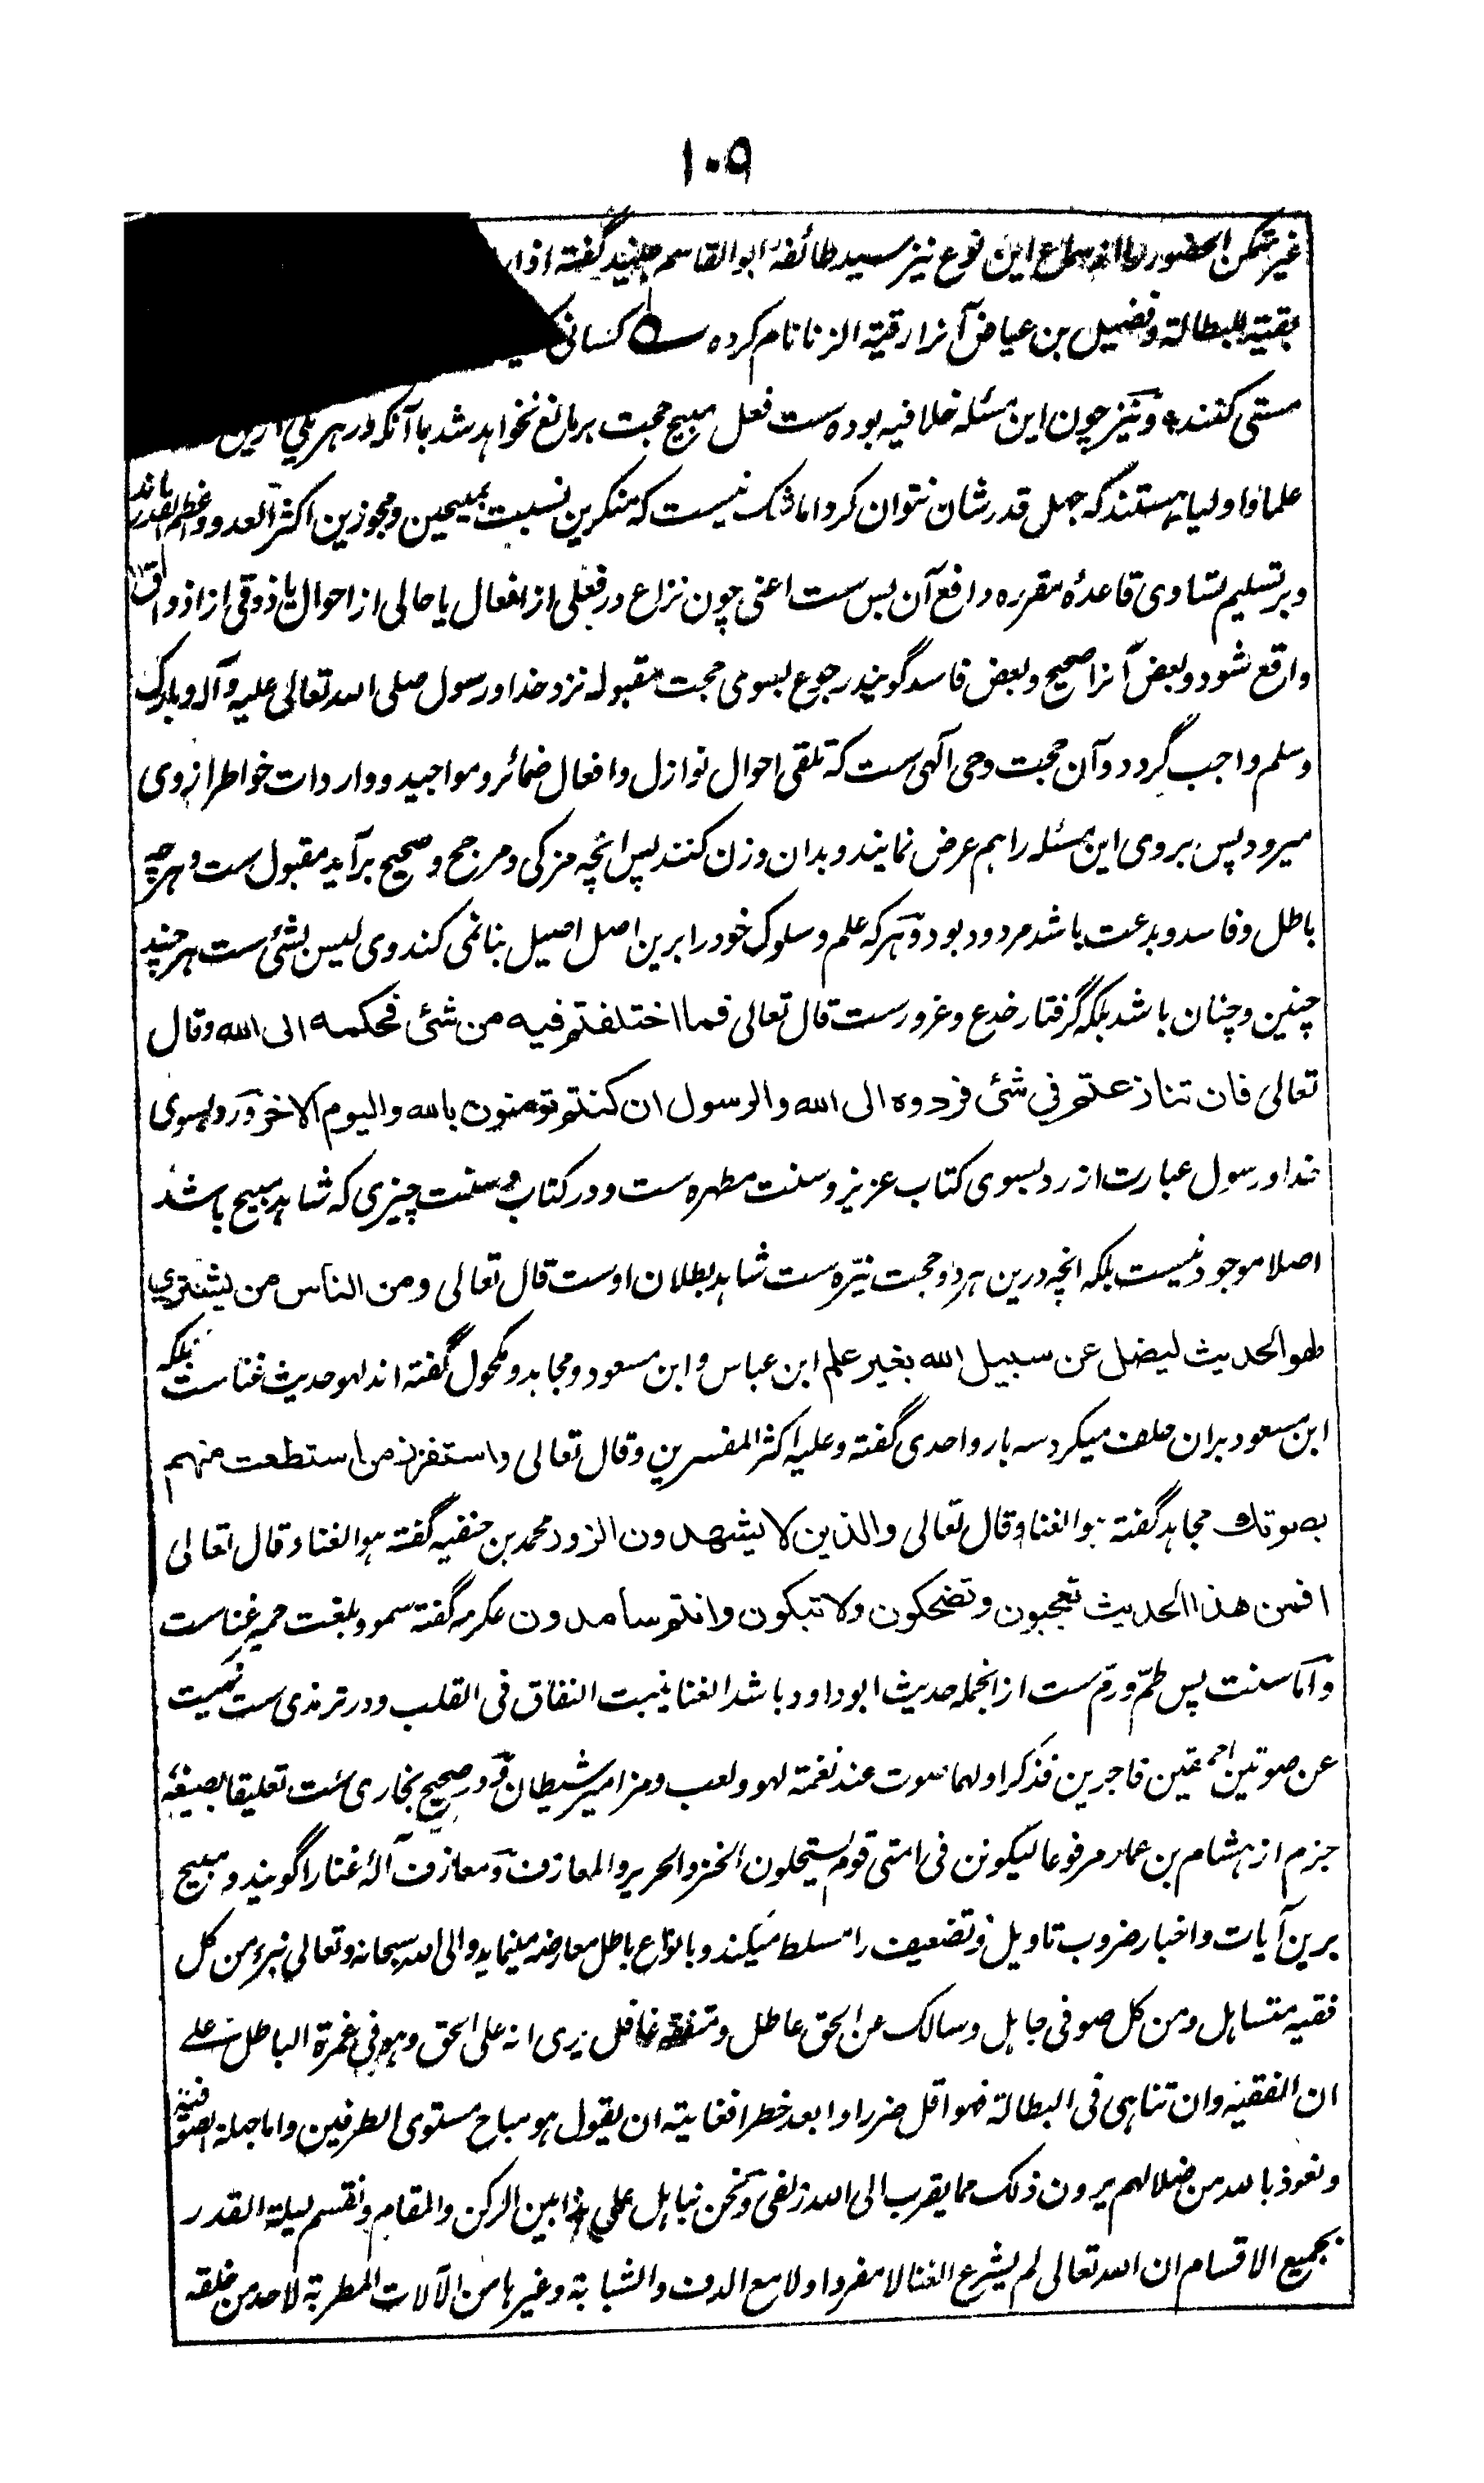 ۱۰۹
غیر متمکن الحضور را از سماع این نوع نیز سید طائفه ابو القاسم جنید گفته اذا را
بقیة للبطالة و فضیل بن عیاض آنرا رقیة الزنا نام کرده ست کسانی
مستی کنند و نیز چون این مسئله خلافیه بوده ست فعل مبیح حجت بر مانع نخواهد شد با آنکه در هر یکی ازین
علما و اولیا هستند که جهل قدر شان نتوان کرد اما شک نیست که منکرین نسبت بمبیحین و مجوزین اکثر العدد و اعظم القدر اند
و بر تسلیم تساوی قاعدهٔ مقرره دافع آن بس ست اعنی چون نزاع در فعلی از افعال یا حالی از احوال یا ذوقی از اذواق
واقع شود و بعض آنرا صحیح و بعض فاسد گویند رجوع بسوی حجت مقبوله نزد خدا و رسول صلی الله تعالی علیه و آله و بارک
وسلم واجب گردد و آن حجت وحی آلهی ست که تلقی احوال نوازل و افعال ضمائر و مواجید و واردات خواطر از وی
میرود پس بروی این مسئله را هم عرض نمایند و بدان وزن کنند پس انچه مزکی و مرجح و صحیح برآید مقبول ست و هر چه
باطل و فاسد و بدعت باشد مردود بود و هر که علم و سلوک خود را برین اصل اصیل بنا نمی کند وی لیس بشئ ست هر چند
چنین و چنان باشد بلکه گرفتار خدع و غرورست قال تعالی فما اختلفتم فیه من شئ فحکمه الی الله وقال
تعالی فان تنازعتم فی شئ فردوه الی الله والرسول ان کنتم تومنون بالله والیوم الاخر ورد بسوی
خدا و رسول عبارت از رد بسوی کتاب عزیز و سنت مطهره ست و در کتاب و سنت چیزی که شاهد مبیح باشد
اصلا موجود نیست بلکه انچه درین هر دو حجت نیره ست شاهد بطلان اوست قال تعالی ومن الناس من یشتری
لهو الحدیث لیضل عن سبیل الله بغیر علم ابن عباس و ابن مسعود و مجاهد و مکحول گفته اند لهو حدیث غناست بلکه
ابن مسعود بران حلف میکرد سه بار و احدی گفته و علیه اکثر المفسرین و قال تعالی واستفزز من استطعت منهم
بصوتك مجاهد گفته هو الغنا و قال تعالی والذین لا یشهدون الزور محمد بن حنفیه گفته هو الغناء و قال تعالی
افمن هذا الحدیث تعجبون وتضحکون ولا تبکون وانتم سامدون عکرمه گفته سمود بلغت حمیر غناست
و اما سنت پس طم و رم ست از انجمله حدیث ابو داود باشد الغنا ینبت النفاق فی القلب و در ترمذی ست نهیت
عن صوتین احمقین فاجرین فذکر اولهما صوت عند نغمة لهو و لعب و مزامیر شیطان و در صحیح بخاری ست تعلیقا بصیغهٔ
جزم از هشام بن عمار مرفوعا لیکونن فی امتی قوم یستحلون الخز والحریر والمعازف و معازف آلهٔ غنا را گویند و مبیح
برین آیات و اخبار ضروب تاویل و تضعیف را مسلط میکند و بانواع باطل معارضه مینماید والی الله سبحانه وتعالی نبرء من کل
فقیه متساهل ومن کل صوفی جاهل وسالک عن الحق عاطل ومتفقه غافل یری انه علی الحق وهو فی غمرة الباطل علی
ان الفقیه وان تناهی فی البطالة فهو اقل ضررا وابعد خطرا فغایته ان یقول هو مباح مستوی الطرفین واما جهلة الصوفیة
ونعوذ بالله من ضلالهم یرون ذلک مما یقرب الی الله زلفی ونحن نباهل علی هذا بین الرکن والمقام ونقسم لیلة القدر
بجمیع الاقسام ان الله تعالی لم یشرع الغنا لا مفردا ولا مع الدف والشبابة وغیرها من الآلات المطربة لاحد من خلقه